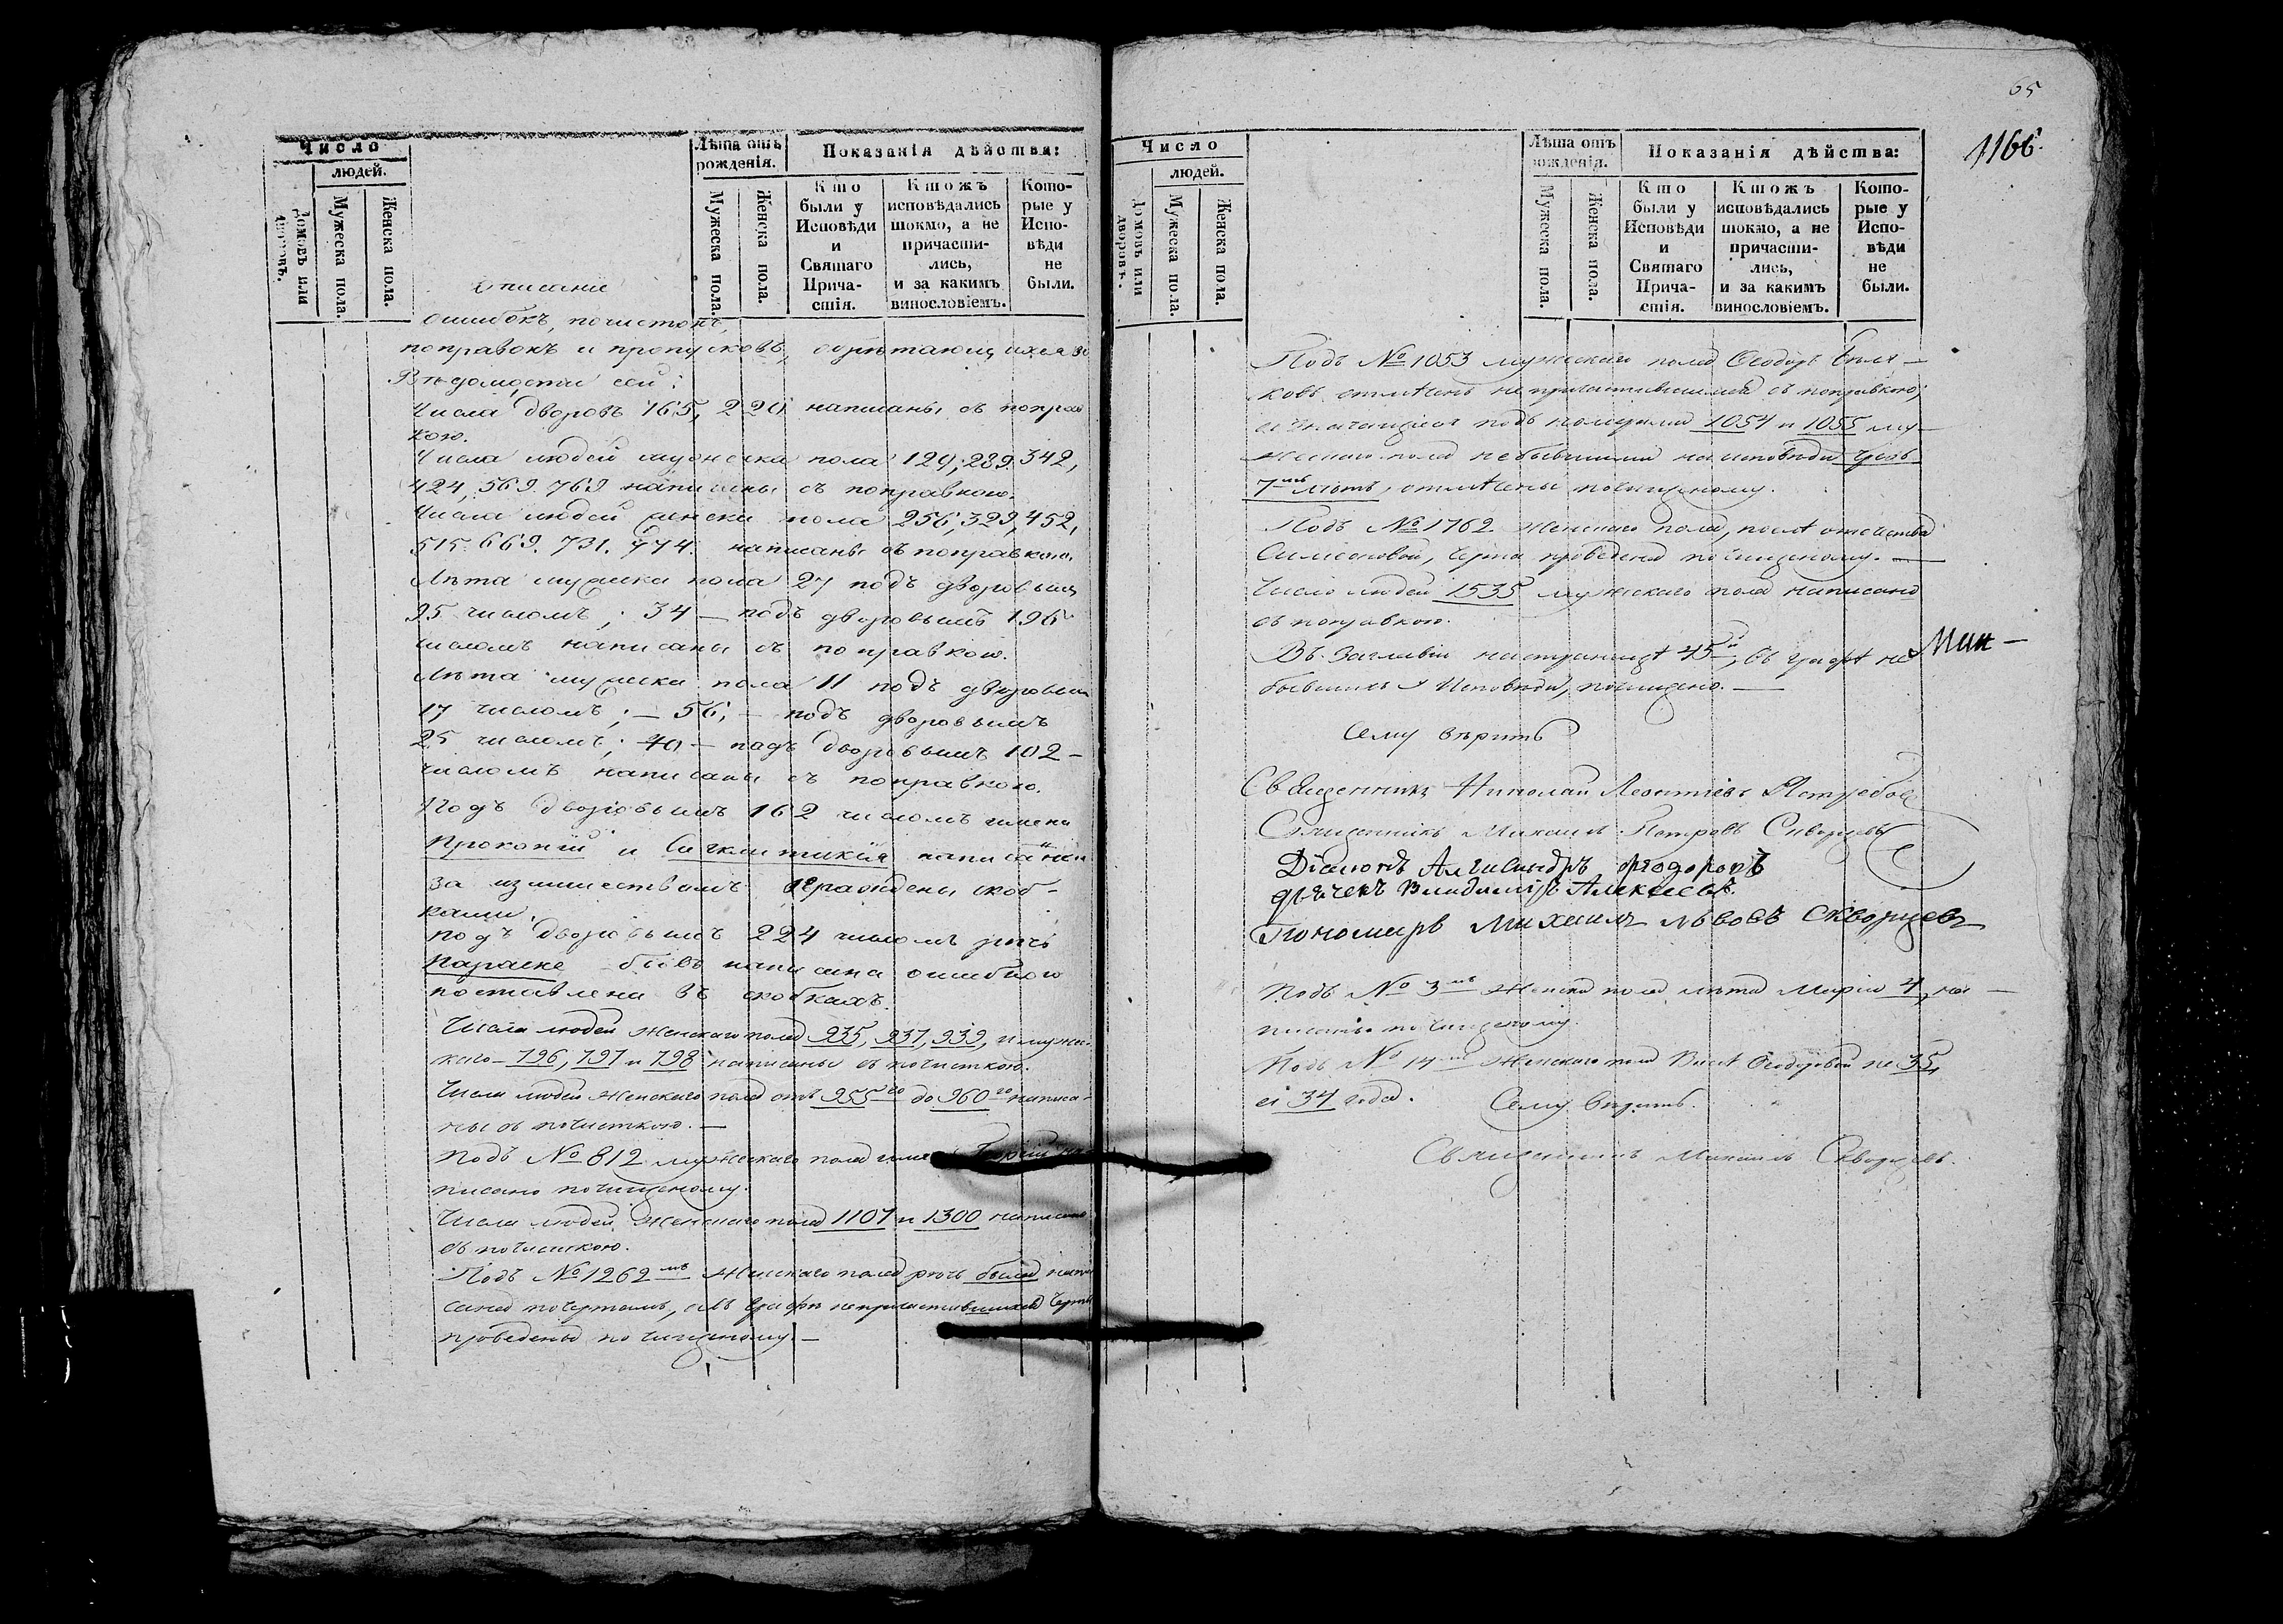 Число
людей.
Домовъ или дворовъ.
Мужеска пола.
Женска пола.
Лѣта отъ рожденія.
Мужеска пола.
Женска пола.
Показанія дѣйства:
Кто были у Исповѣди и Святаго Причастія.
Ктожъ исповѣдались токмо, а не причастились, и за какимъ винословіемъ.
Которые у Исповѣди не были.
Описаніе
ошибокъ, почистокъ,
поправокъ и пропусковъ, обрѣтающихся во
Вѣдомости сей:
Числа дворовъ 165, 220 написаны съ поправ
кою.
Числа людей мужеска пола 129, 289. 342,
424, 569. 769 написаны съ поправкою.
Числа людей женска пола 256, 329, 452,
515. 669. 731. 774. написаны съ поправкою.
Лѣта мужеска пола 27 подъ дворовымъ
95 числомъ; 34 — подъ дворовымъ 196
числомъ написаны съ поправкою.
Лѣта мужеска пола 11 подъ дворовым
17 числомъ; — 56; — подъ дворовымъ
25 числомъ; 40 — подъ дворовымъ 102 —
числомъ написаны съ поправкою.
Подъ дворовымъ 162 числомъ имена
Прокопій и Сигклитикія написанныя
за излишествомъ ограждены скоб-
ками.
подъ дворовымъ 224 числомъ рѣчь
бывъ написана ошибкою
поставлена въ скобкахъ.
Числа людей женскаго пола 935, 937, 939, и мужес
каго — 796, 797 и 798 написаны съ почисткою.
Числа людей женскаго пола отъ 955го до 960го написа-
ны съ почисткою. —
Подъ № 812 мужескаго пола имя Георгій на
писано почищеному.
Числа людей женскаго пола 1101 и 1300 написано
съ почисткою.
Подъ № 1262мъ женскаго пола рѣчь была напи
сана по чертамъ, въ графѣ непричастившихся черты
проведены по чищеному. —
65
1166.
Число
людей.
Домовъ или дворовъ.
Мужеска пола.
Женска пола.
Лѣта отъ рожденія.
Мужеска пола.
Женска пола.
Показанія дѣйства:
Кто были у Исповѣди и Святаго Причастія.
Ктожъ исповѣдались токмо, а не причастились, и за какимъ винословіемъ.
Которые у Исповѣди не были.
Подъ № 1053 мужескаго пола Ѳеодоръ Бѣля-
ковъ отмѣченъ непричастившимся съ поправкою,
а значащіеся подъ номерами 1054 и 1055 му-
жескаго пола небывшими на исповѣди
7мъ лѣтъ, отмѣчены почищеному.
Подъ № 1762. Женскаго пола, послѣ отечества
Симеоновой, черта проведена по чищеному. —
Число людей 1535 мужескаго пола написано
съ поправкою.
Въ заглавіи на страницѣ 45й, въ графѣ не
бывшихъ у Исповѣди, почищено. —
Сему вѣрить
Священникъ Николай Леонтіевъ Ястребовъ
Священникъ Михаилъ Петровъ Скворцевъ
Діаконъ Александръ Ѳеодоровъ
дьячекъ Владиміръ Алексѣевъ.
Пономарь Михаилъ Львовъ Скворцевъ
Подъ № 3мъ Женска пола лѣта Маріи 4, на —
писаны по чищеному.
Подъ № 14мъ Женскаго пола Ѳеодоровой не 35,
а 34 года.
Сему вѣрить.
Священникъ Михаилъ Скворцевъ.